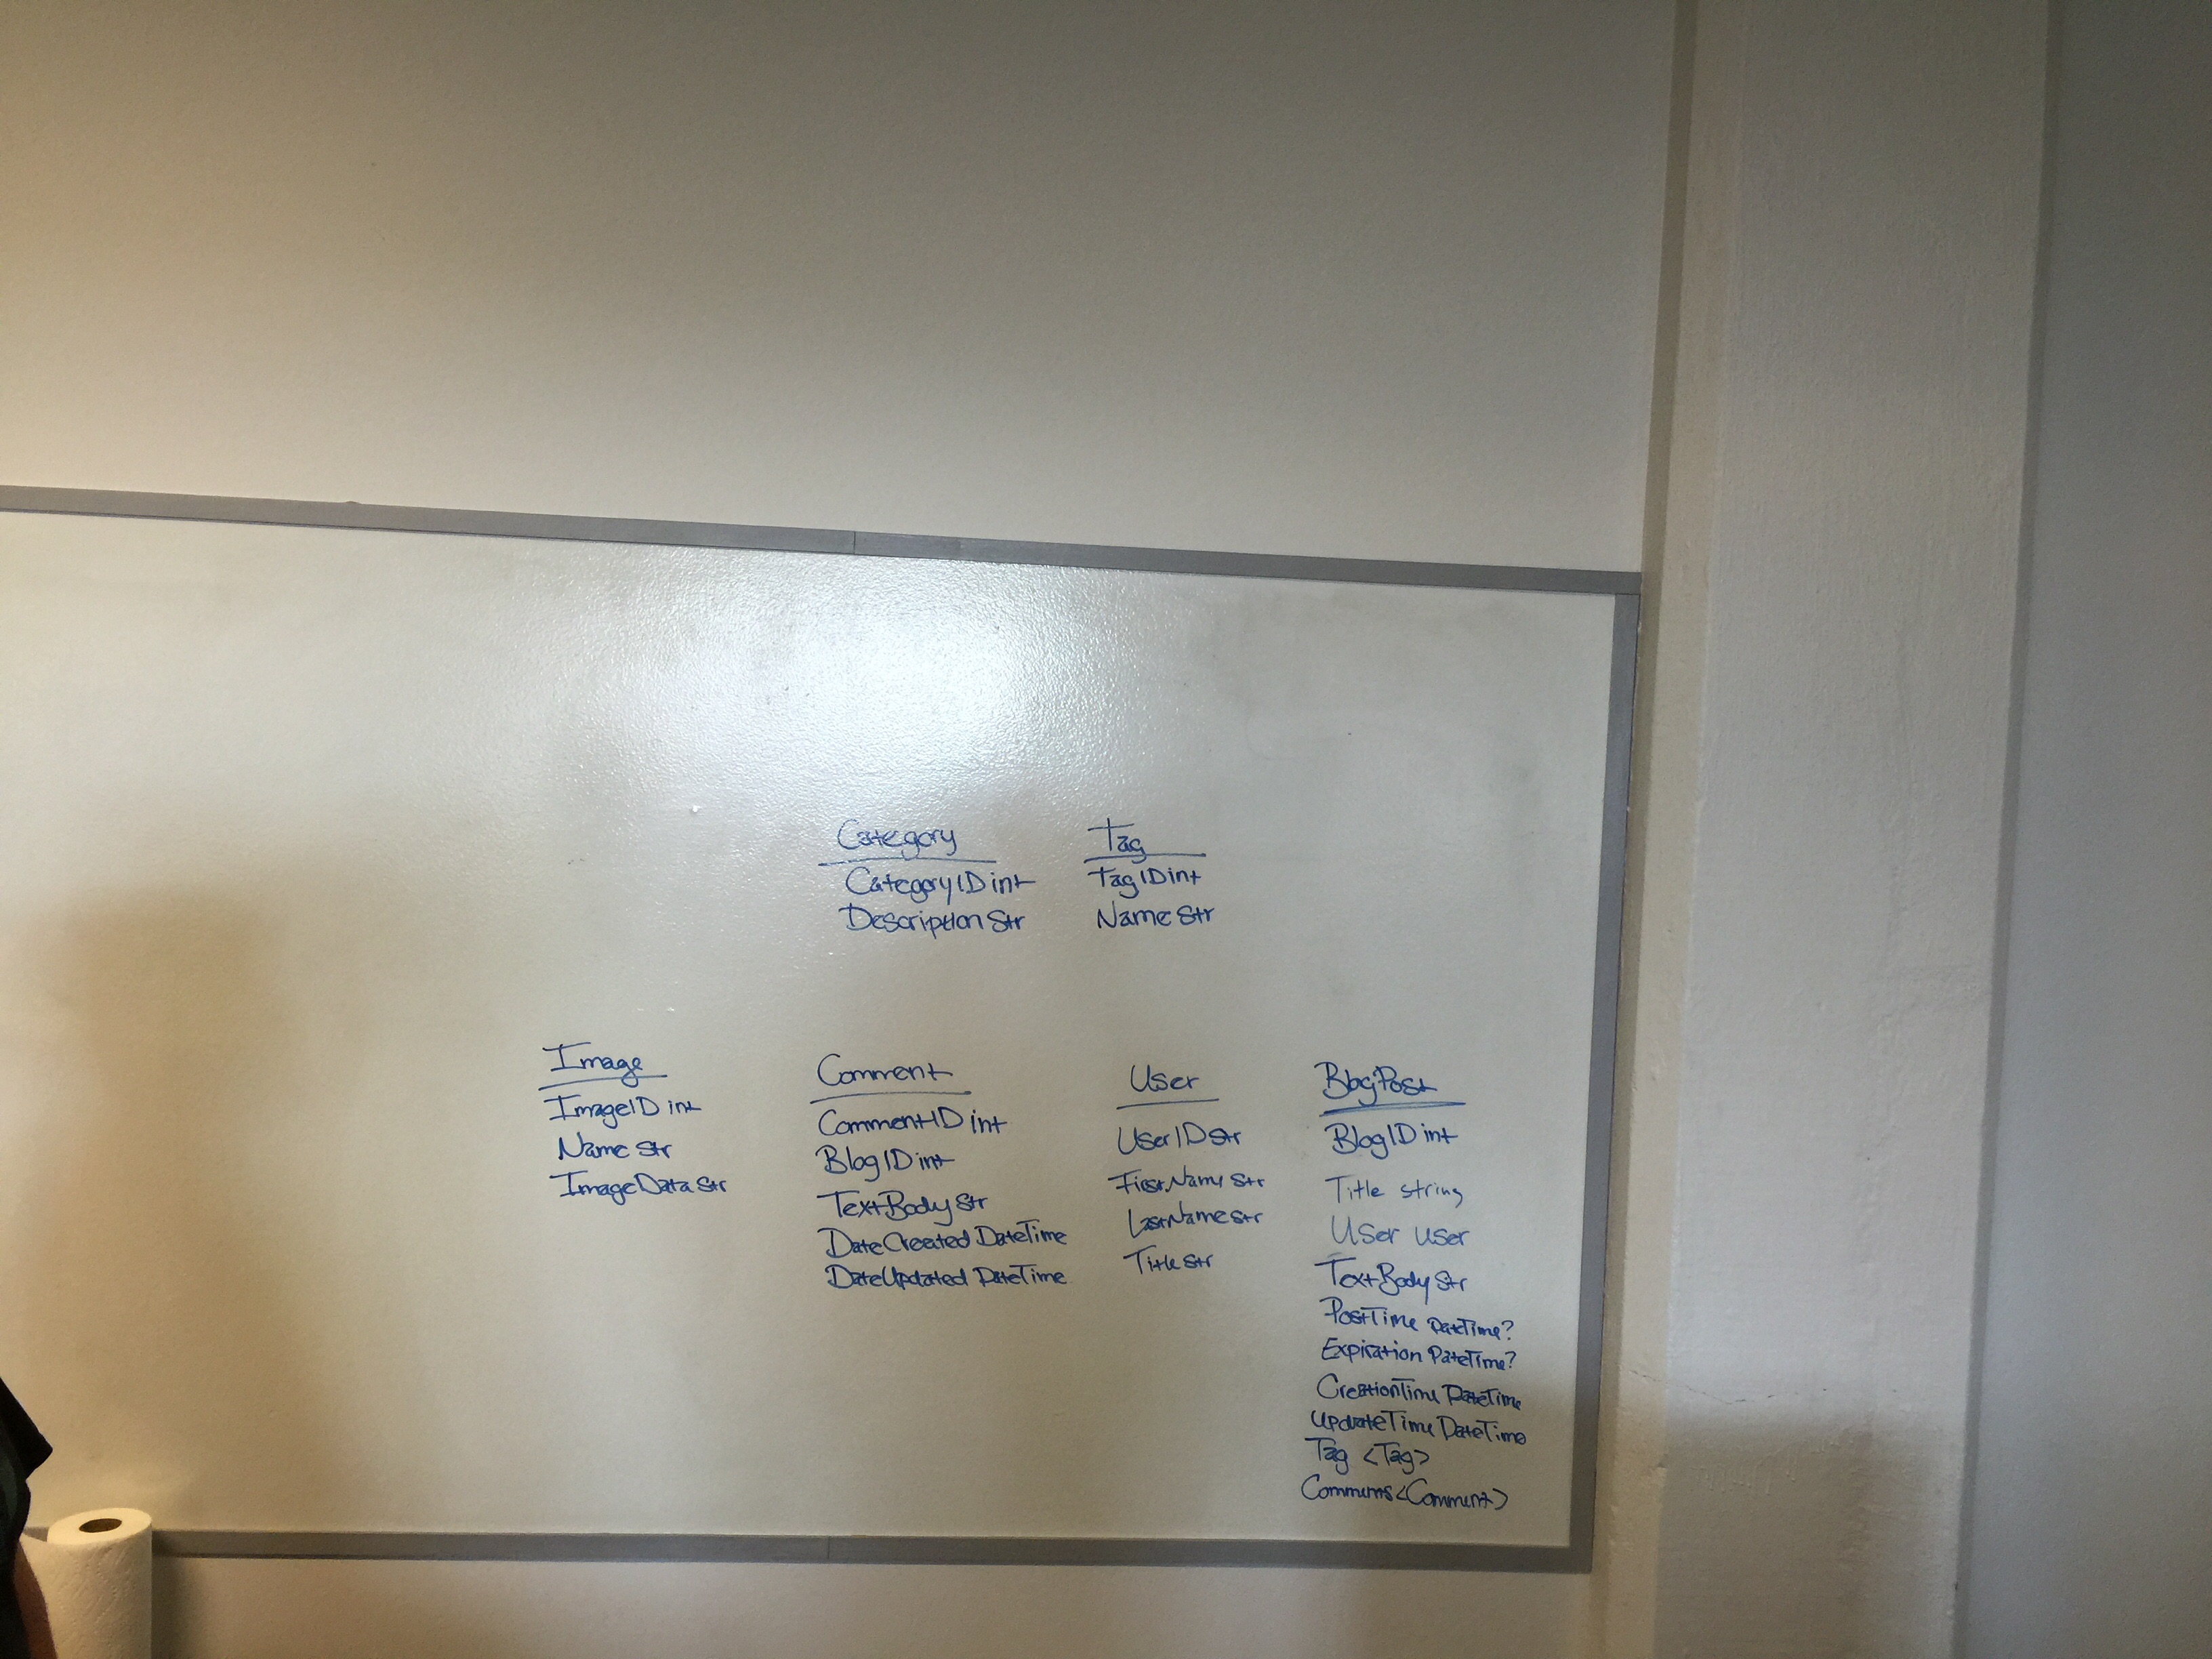 Category
CategoryID int
Description Str
Tag
TagID int
Name Str
Image
ImageID int
Name Str
ImageData Str
Comment
CommentID int
BlogID int
TextBody Str
DateCreated DateTime
DateUpdated DateTime
User
UserID Str
FirstName Str
LastName Str
Title Str
BlogPost
BlogID int
Title string
User User
TextBody Str
PostTime DateTime?
Expiration DateTime?
CreationTime DateTime
UpdateTime DateTime
Tag <Tag>
Comments<Comment>